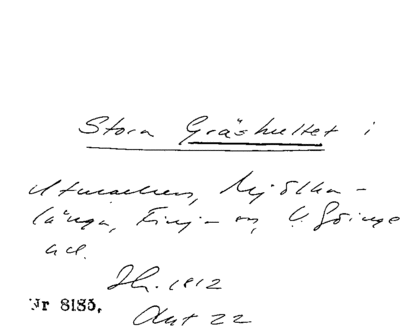 Stora Gräshultet i
Utmarken, Mjölka-
långa, Finja sn, V. Göinge
hd.
Jh. 1912
Nr 8185.
Akt 22